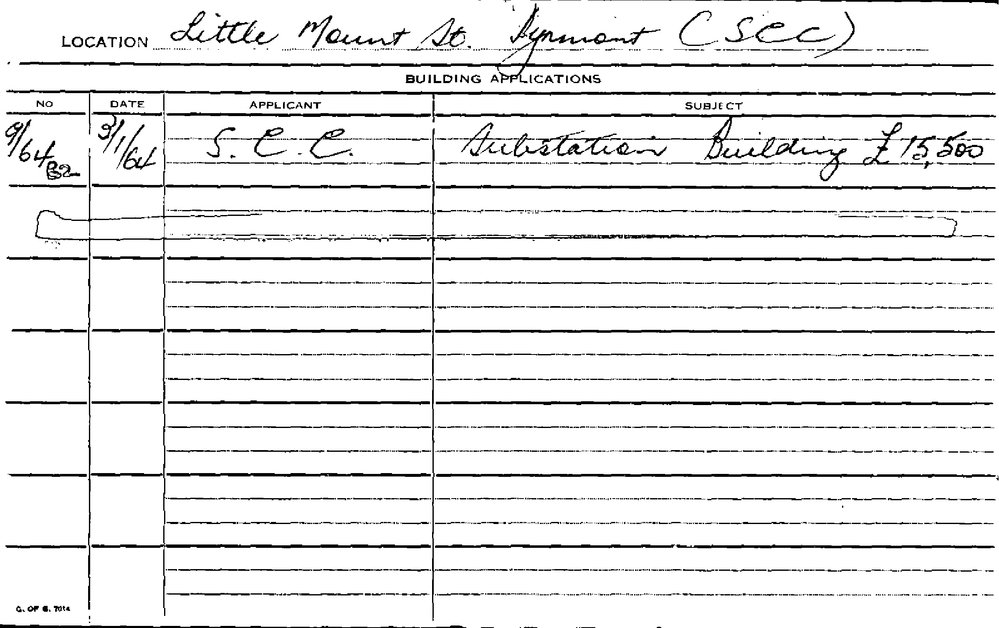 LOCATION Little Mount St. Pyrmont (SCC)
BUILDING APPLICATIONS
NO DATE APPLICANT SUBJECT
9/64 3/1/64 S. C. C. Substation Building £15,500
C. OF S. 7014